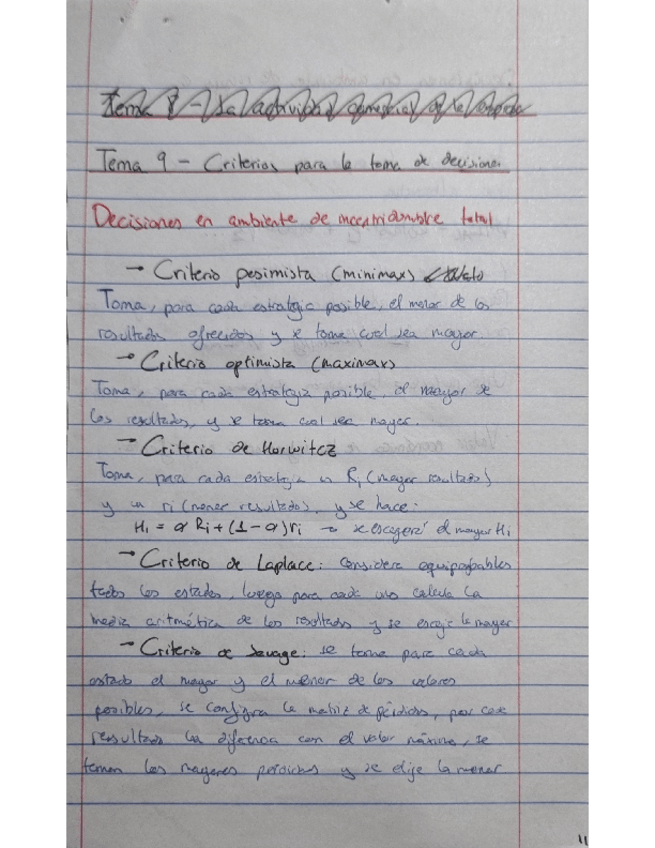 Tema 8 - La actividad comercial de la empresa
Tema 9 - Criterios para la toma de decisiones
Decisiones en ambiente de incertidumbre total
→ Criterio pesimista (minimax) Wald
Toma, para cada estrategia posible, el menor de los
resultados ofrecidos y se toma cual sea mayor.
→ Criterio optimista (maximax)
Toma, para cada estrategia posible, el mayor de
los resultados, y se toma cual sea mayor.
→ Criterio de Horwitcz
Toma, para cada estrategia un Ri (mayor resultado)
y un ri (menor resultado), y se hace:
Hi = α Ri + (1 - α) ri → se escogerá el mayor Hi
→ Criterio de Laplace: Considera equiprobables
todos los estados, luego para cada uno calcula la
media aritmética de los resultados y se escoje la mayor
→ Criterio de Savage: se toma para cada
estado el mayor y el menor de los valores
posibles, se configura la matriz de pérdidas, por cada
resultado la diferencia con el valor máximo, se
toman las mayores pérdidas y se elije la menor
11